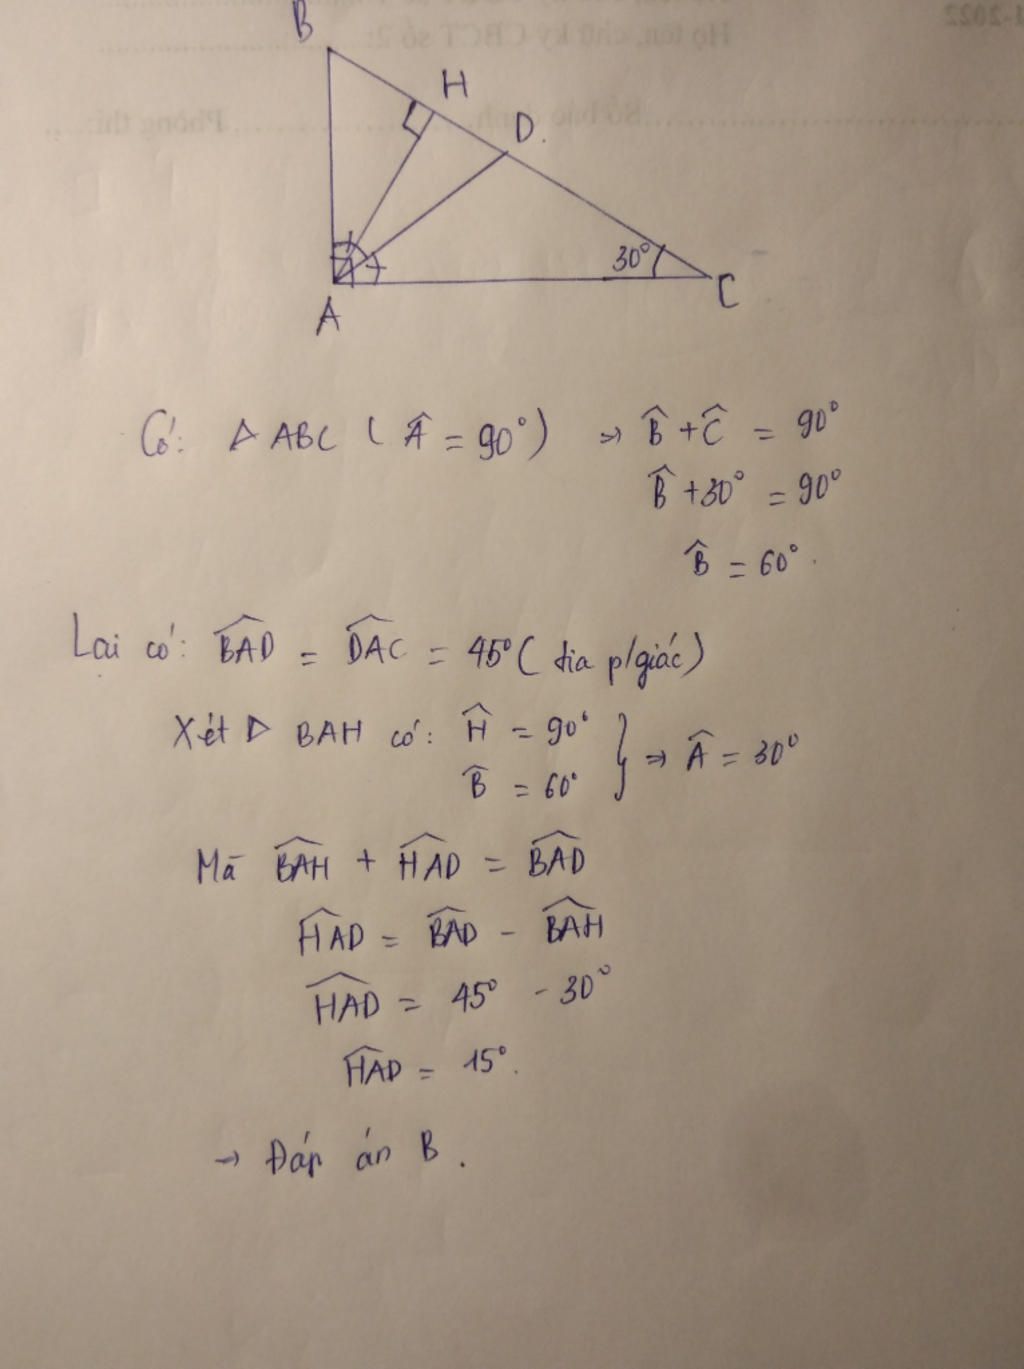 B
H
D.
30°
A
C
Có: Δ ABC ( Â = 90° ) => B̂ + Ĉ = 90°
B̂ + 30° = 90°
B̂ = 60° .
Lại có: BAD̂ = DAĈ = 45° ( tia p/giác)
Xét Δ BAH có: Ĥ = 90° } => Â = 30°
B̂ = 60°
Mà BAĤ + HAD̂ = BAD̂
HAD̂ = BAD̂ - BAĤ
HAD̂ = 45° - 30°
HAD̂ = 15°.
→ Đáp án B .